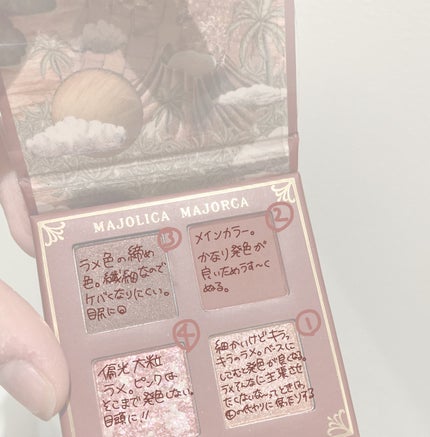 MAJOLICA MAJORCA
③
ラメ色の締め
色。繊細なので
ケバくなりにくい。
目尻に◎
②
メインカラー。
かなり発色が
良いためうす〜く
ぬる。
④
偏光大粒
ラメ。ピンクは
そこまで発色しない。
目頭に!!
①
細かいけどキラッ
キラッラメ。ベースに
してむと発色が良くなる。
ラメそんなに主張させ
たくないな〜ってときは、
④の代わりに使ったりする